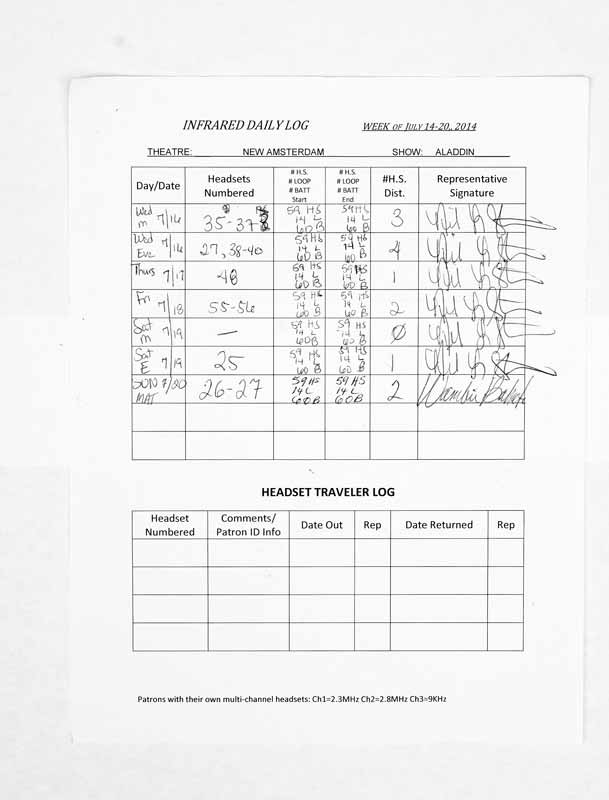 INFRARED DAILY LOG WEEK OF JULY 14-20, 2014
THEATRE: NEW AMSTERDAM SHOW: ALADDIN
Day/Date Headsets Numbered # H.S. # LOOP # BATT Start # H.S. # LOOP # BATT End #H.S. Dist. Representative Signature
Wed M 7/16 35-37 59 HS 14 L 60 B 59 HS 14 L 60 B 3
Wed Eve 7/16 27, 38-40 59 HS 14 L 60 B 59 HS 14 L 60 B 4
Thurs 7/17 48 59 HS 14 L 60 B 59 HS 14 L 60 B 1
Fri 7/18 55-56 59 HS 14 L 60 B 59 HS 14 L 60 B 2
Sat M 7/19 — 59 HS 14 L 60 B 59 HS 14 L 60 B Ø
Sat E 7/19 25 59 HS 14 L 60 B 59 HS 14 L 60 B 1
SUN 7/20 MAT 26-27 59 HS 14 L 60 B 59 HS 14 L 60 B 2
HEADSET TRAVELER LOG
Headset Numbered Comments/ Patron ID Info Date Out Rep Date Returned Rep
Patrons with their own multi-channel headsets: Ch1=2.3MHz Ch2=2.8MHz Ch3=9KHz